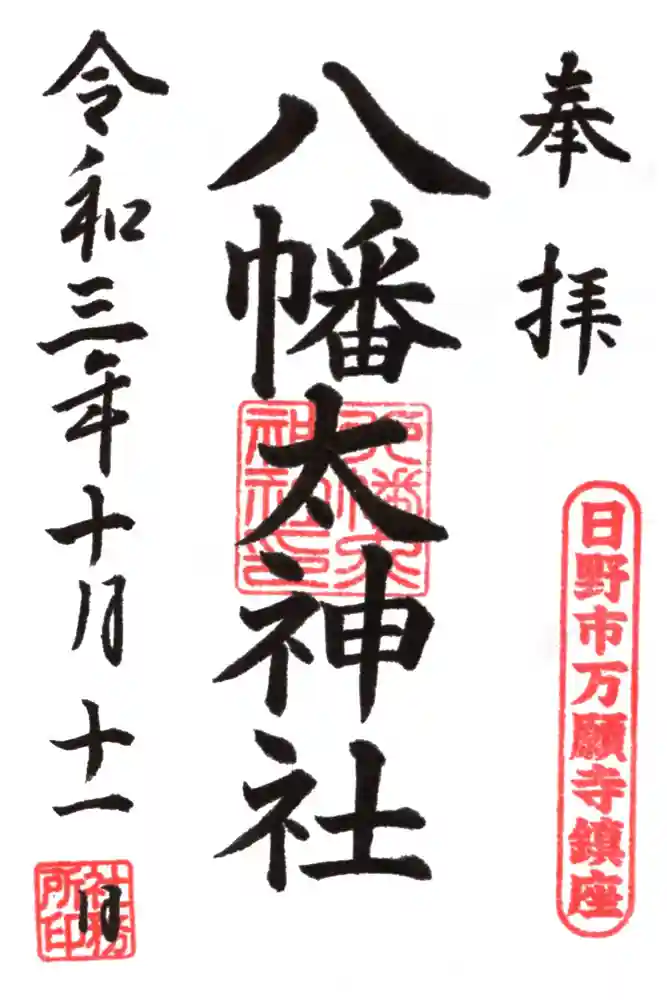 奉拝
日野市万願寺鎮座
八幡太神社
八幡太神社印
令和三年十月十一日
社務所印